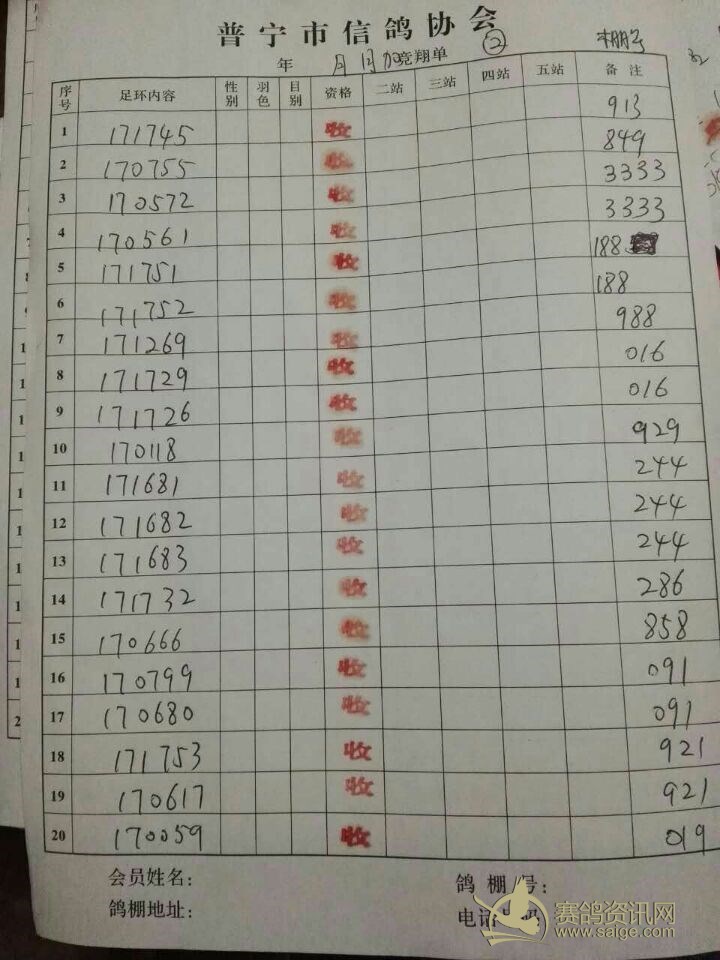 普宁市信鸽协会
年 月 日 加竞翔单 ② 棚号
序号 足环内容 性别 羽色 目别 资格 二站 三站 四站 五站 备注
1 171745 收 913
2 170755 收 849
3 170572 收 3333
4 170561 收 3333
5 171751 收 188
6 171752 收 188
7 171269 收 988
8 171729 收 016
9 171726 收 016
10 170118 收 929
11 171681 收 244
12 171682 收 244
13 171683 收 244
14 171732 收 286
15 170666 收 858
16 170799 收 091
17 170680 收 091
18 171753 收 921
19 170617 收 921
20 170059 收 019
会员姓名: 鸽棚 号:
鸽棚地址: 电话 码
赛鸽资讯网
www.saige.com